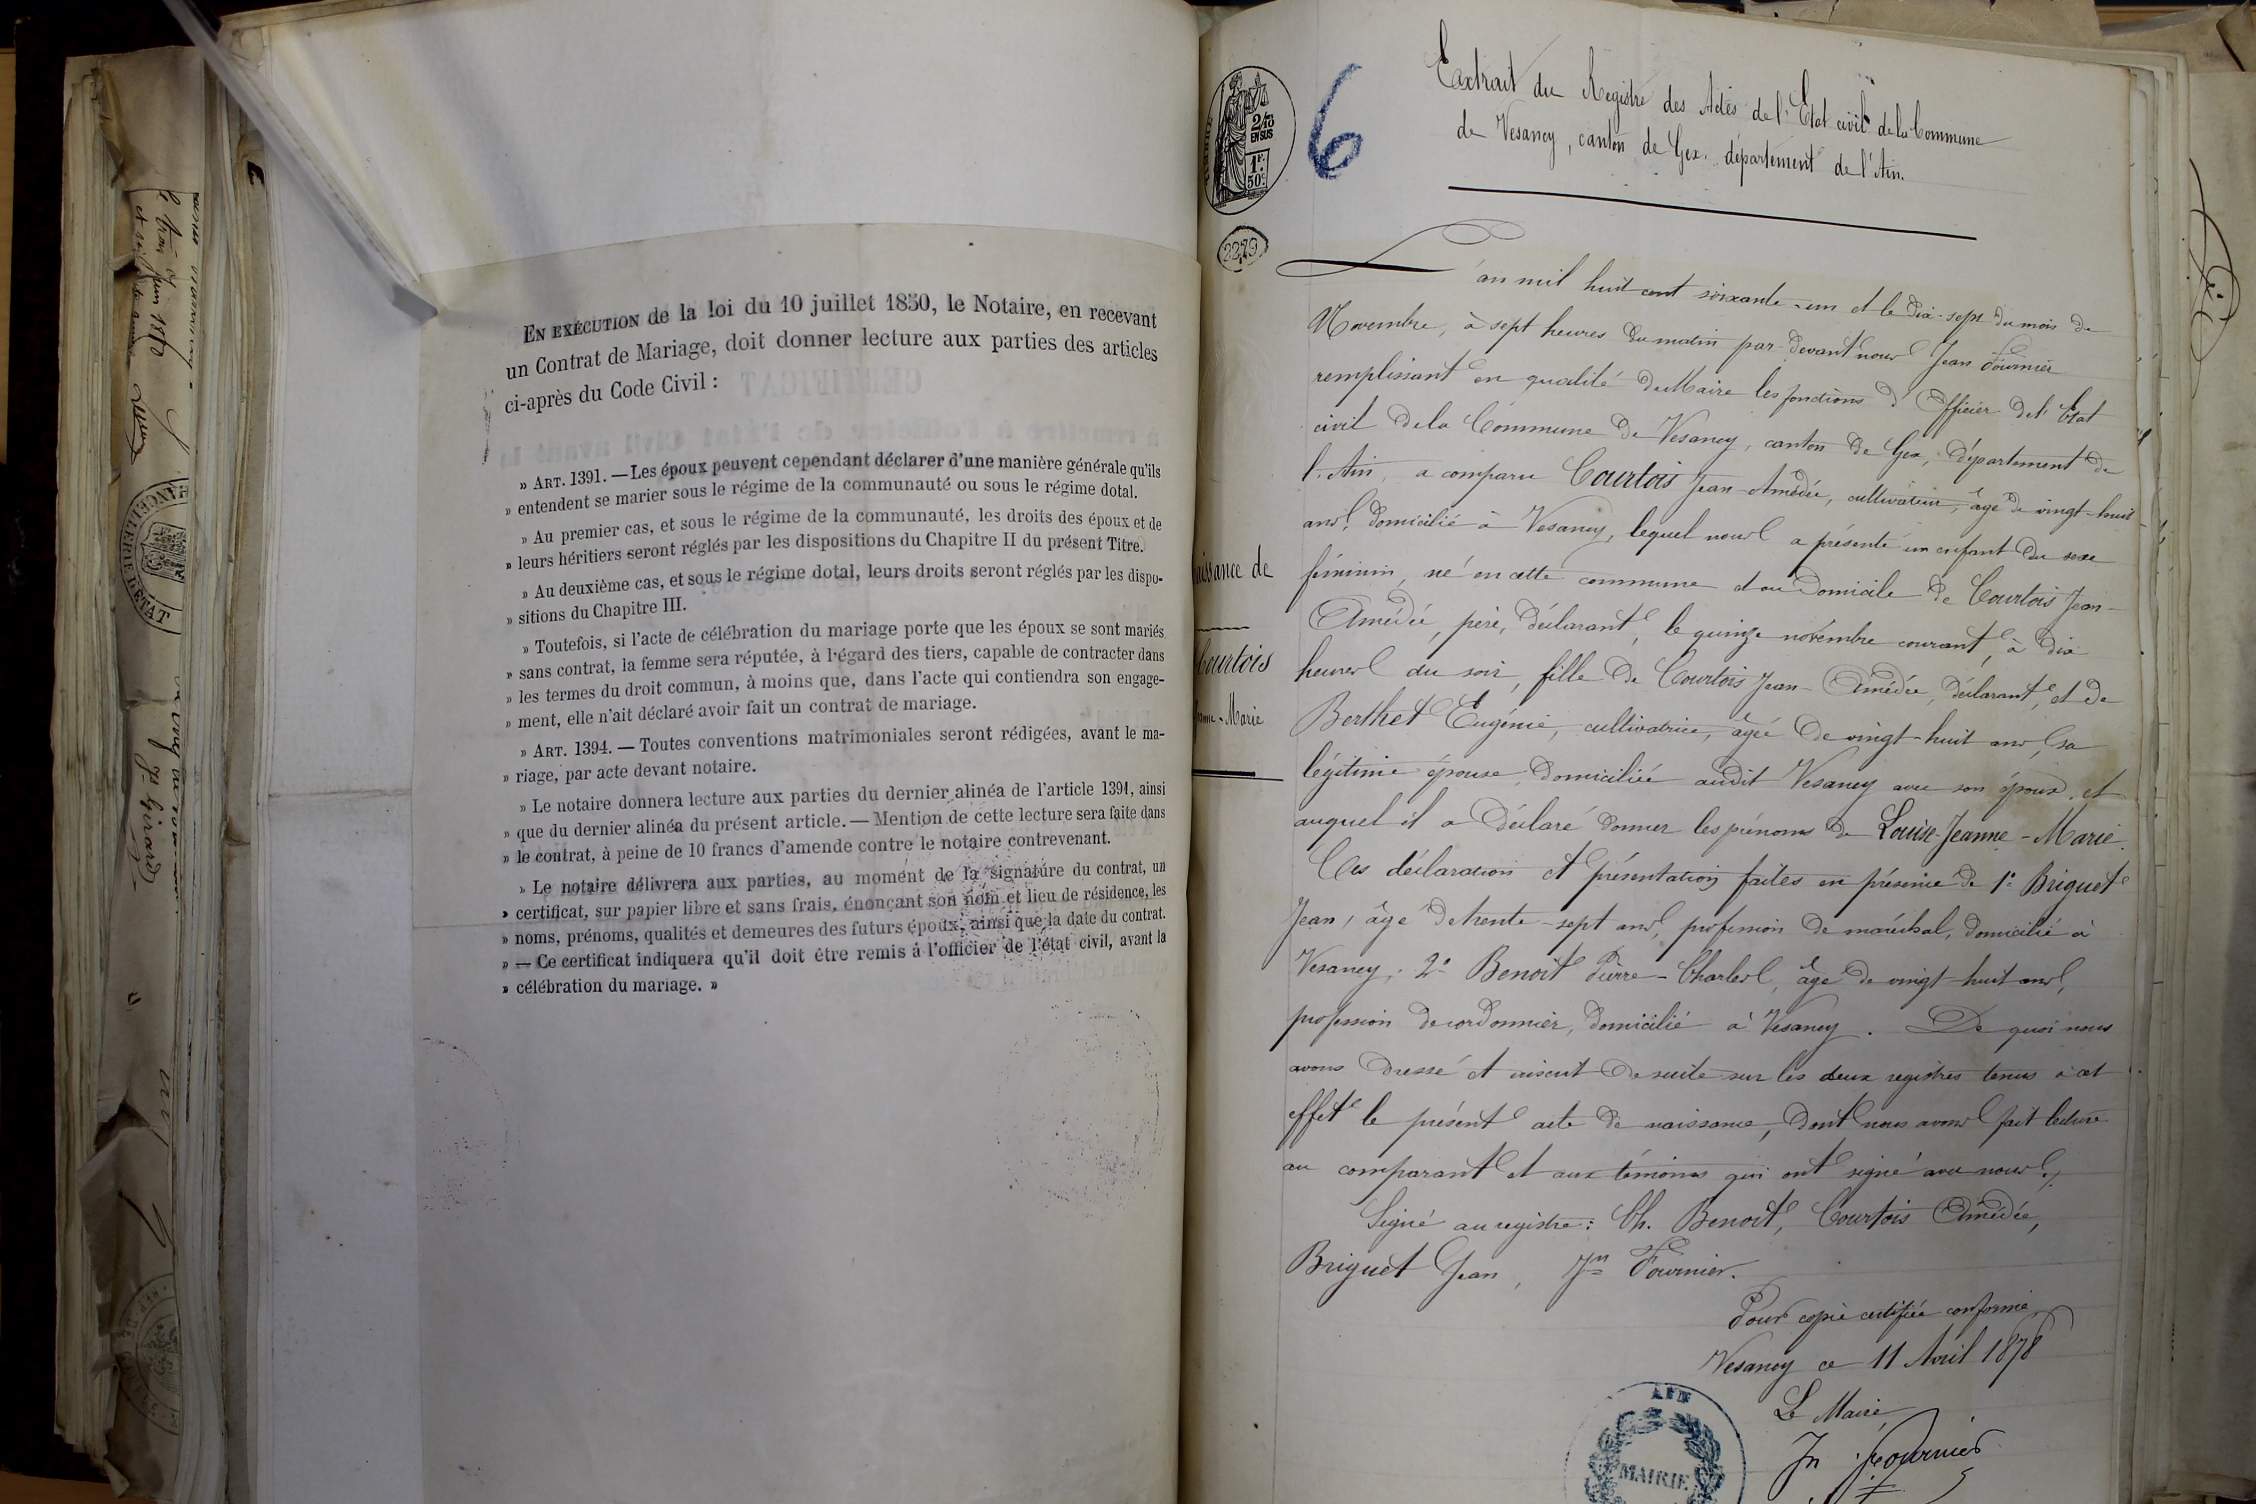 EN EXÉCUTION de la loi du 10 juillet 1850, le Notaire, en recevant
un Contrat de Mariage, doit donner lecture aux parties des articles
ci-après du Code Civil :
» ART. 1391. — Les époux peuvent cependant déclarer d'une manière générale qu'ils
» entendent se marier sous le régime de la communauté ou sous le régime dotal.
» Au premier cas, et sous le régime de la communauté, les droits des époux et de
» leurs héritiers seront réglés par les dispositions du Chapitre II du présent Titre.
» Au deuxième cas, et sous le régime dotal, leurs droits seront réglés par les dispo-
» sitions du Chapitre III.
» Toutefois, si l'acte de célébration du mariage porte que les époux se sont mariés
» sans contrat, la femme sera réputée, à l'égard des tiers, capable de contracter dans
» les termes du droit commun, à moins que, dans l'acte qui contiendra son engage-
» ment, elle n'ait déclaré avoir fait un contrat de mariage.
» ART. 1394. — Toutes conventions matrimoniales seront rédigées, avant le ma-
» riage, par acte devant notaire.
» Le notaire donnera lecture aux parties du dernier alinéa de l'article 1391, ainsi
» que du dernier alinéa du présent article. — Mention de cette lecture sera faite dans
» le contrat, à peine de 10 francs d'amende contre le notaire contrevenant.
» Le notaire délivrera aux parties, au moment de la signature du contrat, un
» certificat, sur papier libre et sans frais, énonçant son nom et lieu de résidence, les
» noms, prénoms, qualités et demeures des futurs époux, ainsi que la date du contrat.
» — Ce certificat indiquera qu'il doit être remis à l'officier de l'état civil, avant la
» célébration du mariage. »
2/10
EN SUS
1F.
50c
6
2279
Extrait du Registre des Actes de l'Etat civil de la Commune
de Vesancy, canton de Gex, département de l'Ain.
L'an mil huit cent soixante-un et le dix-sept du mois de
Novembre, à sept heures du matin par devant nous Jean Fournier
remplissant en qualité de Maire les fonctions d'Officier de l'Etat
civil de la Commune de Vesancy, canton de Gex, département de
l'Ain, a comparu Courtois Jean-Amédée, cultivateur, âgé de vingt-huit
ans, domicilié à Vesancy, lequel nous a présenté un enfant du sexe
féminin, né en cette commune et au domicile de Courtois Jean-
Amédée, père, déclarant, le quinze novembre courant, à dix
heures du soir, fille de Courtois Jean-Amédée, déclarant, et de
Berthet Eugénie, cultivatrice, âgée de vingt-huit ans, sa
légitime épouse, domiciliée audit Vesancy avec son époux, et
auquel il a déclaré donner les prénoms de Louise-Jeanne-Marie.
Ces déclaration et présentation faites en présence de 1° Briguet
Jean, âgé de trente-sept ans, profession de maréchal, domicilié à
Vesancy; 2° Benoit Pierre-Charles, âgé de vingt-huit ans,
profession de cordonnier, domicilié à Vesancy. De quoi nous
avons dressé et inscrit de suite sur les deux registres tenus à cet
effet le présent acte de naissance, dont nous avons fait lecture
au comparant et aux témoins qui ont signé avec nous.
Signé au registre : Ch. Benoit, Courtois Amédée,
Briguet Jean, Jn Fournier.
Pour copie certifiée conforme
Vesancy ce 11 Avril 1878
Le Maire,
Jn Fournier
MAIRIE
aissance de
Courtois
Marie
CHANCELLERIE D'ÉTAT